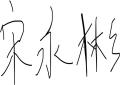 宋永彬